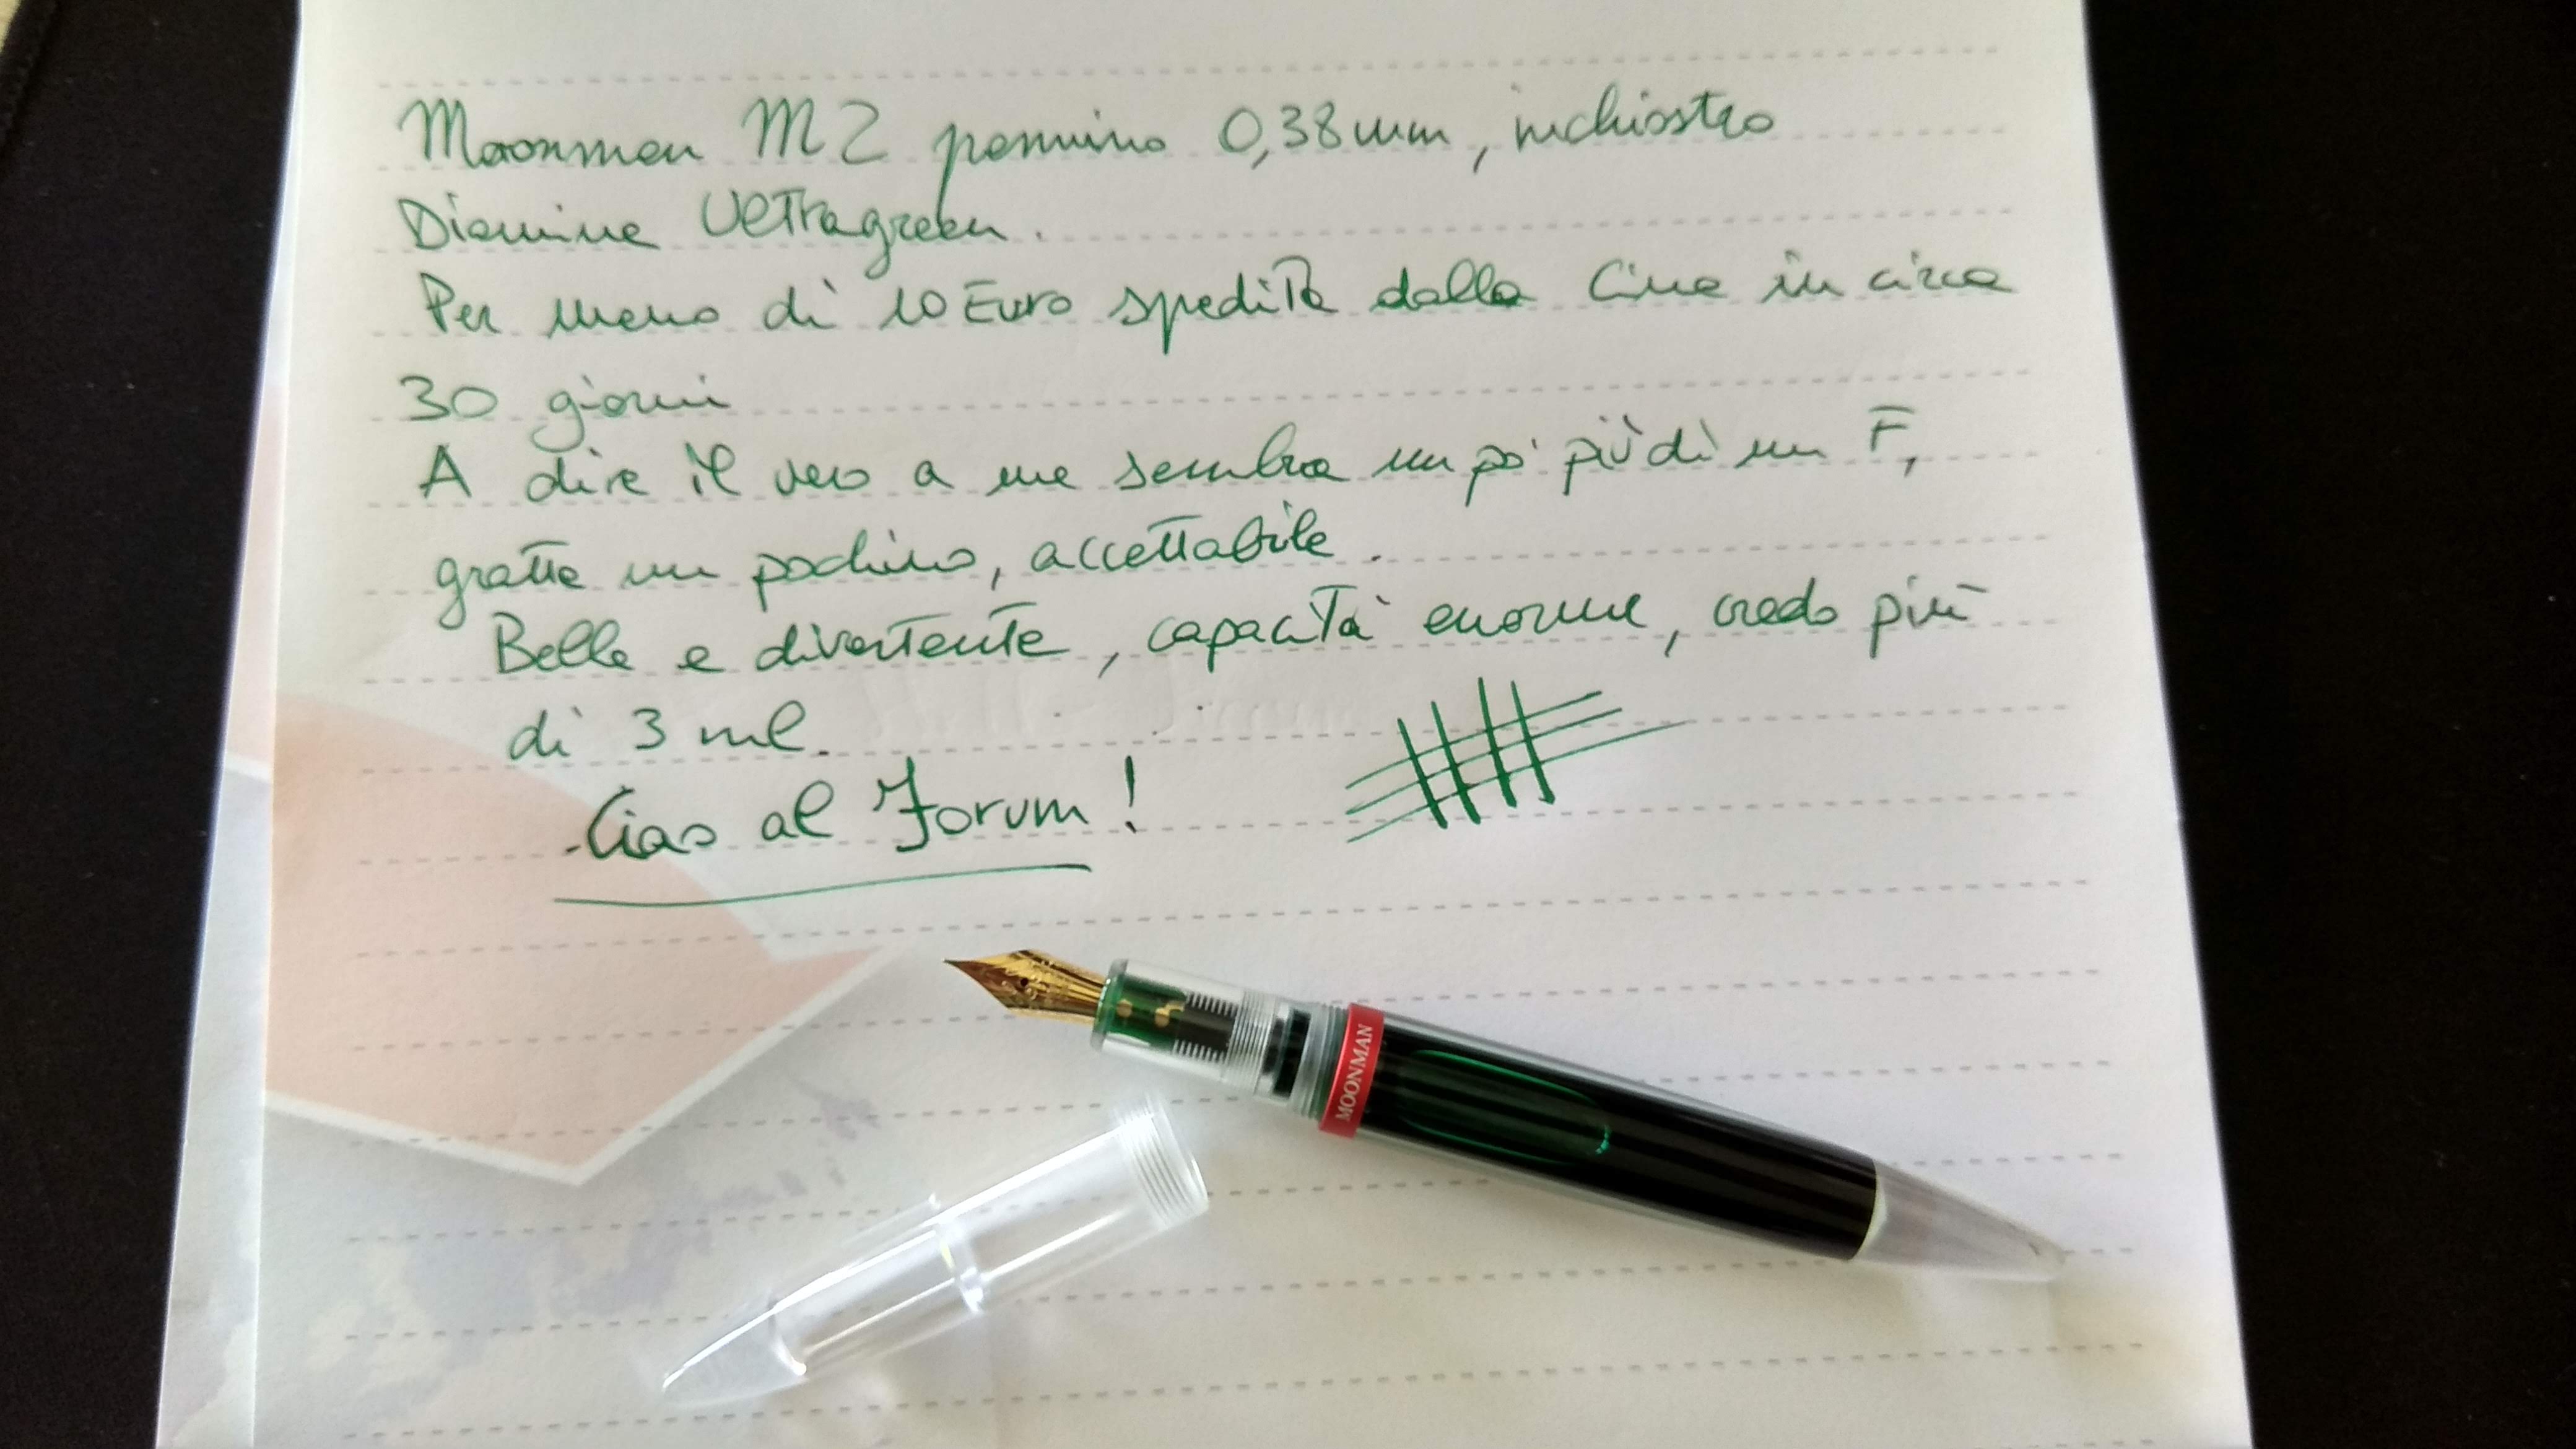 Moonman M2 pennino 0,38mm, inchiostro
Diamine Ultragreen.
Per meno di 10 Euro spedita dalla Cina in circa
30 giorni
A dire il vero a me sembra un po' più di un F,
gratta un pochino, accettabile.
Bella e divertente, capacità enorme, credo più
di 3 ml.
Ciao al Forum!
MOONMAN